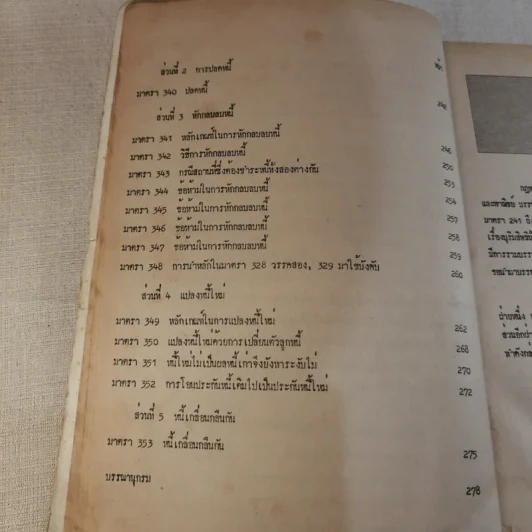 หน้า
ส่วนที่ 2 การปลดหนี้
มาตรา 340 ปลดหนี้
ส่วนที่ 3 หักกลบลบหนี้
มาตรา 341 หลักเกณฑ์ในการหักกลบลบหนี้ 246
มาตรา 342 วิธีการหักกลบลบหนี้ 250
มาตรา 343 กรณีสถานที่ซึ่งต้องชำระหนี้ทั้งสองต่างกัน 253
มาตรา 344 ข้อห้ามในการหักกลบลบหนี้ 254
มาตรา 345 ข้อห้ามในการหักกลบลบหนี้ 257
มาตรา 346 ข้อห้ามในการหักกลบลบหนี้ 258
มาตรา 347 ข้อห้ามในการหักกลบลบหนี้ 259
มาตรา 348 การนำหลักในมาตรา 328 วรรคสอง, 329 มาใช้บังคับ 260
ส่วนที่ 4 แปลงหนี้ใหม่
มาตรา 349 หลักเกณฑ์ในการแปลงหนี้ใหม่ 262
มาตรา 350 แปลงหนี้ใหม่ด้วยการเปลี่ยนตัวลูกหนี้ 268
มาตรา 351 หนี้ใหม่ไม่เป็นผลหนี้เก่าจึงยังหาระงับไม่ 270
มาตรา 352 การโอนประกันหนี้เดิมไปเป็นประกันหนี้ใหม่ 272
ส่วนที่ 5 หนี้เกลื่อนกลืนกัน
มาตรา 353 หนี้เกลื่อนกลืนกัน 275
บรรณานุกรม 278
และพาณิชย์ บรร
มาตรา 241 ถึง